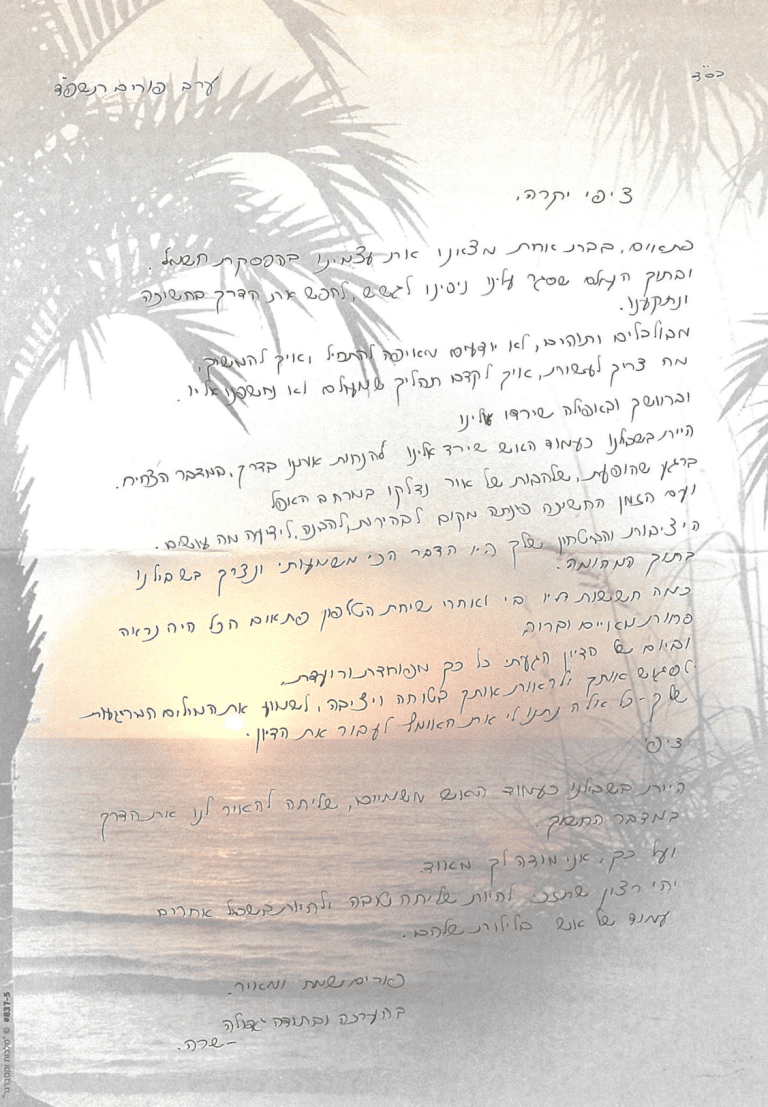 בס"ד
ערב פורים תשפ"ד
ציפי יקרה,
פתאום, בבת אחת מצאנו את עצמינו בהפסקת חשמל.
ובתוך העלם שסגר עלינו ניסינו לגשש, לחפש את הדרך בחשיכה
ונתקענו.
מבולבלים ותוהים, לא יודעים מאיפה להתחיל ואיך להמשיך,
מה צריך לעשות, איך לקדם תהליך שמעולם לא נחשפנו אליו.
ובחושך ובאפילה שירדו עלינו
היית בשבילנו כעמוד האש שירד אלינו להנחות אותנו בדרך, במדבר הצחיח.
ברגע שהופעת, שלהבות של אור נדלקו במרחב האפל
ועם הזמן החשיכה פינתה מקום לבהירות, להבנה, לידיעה מה עושים.
היציבות והביטחון שלך היו הדבר הכי משמעותי ונצרך בשבילנו
בתוך המהומה.
כמה חששות היו בי ואחרי שיחת הטלפון פתאום הכל היה נראה
פחות מאיים וברור
וביום של הדיון הגעתי כל כך מפוחדת ורועדת.
לפגוש אותך ולראות אותך בטוחה ויציבה, לשמוע את המילים המרגיעות
שלך - כל אילה נתנו לי את האומץ לעבור את הדיון.
ציפי
היית בשבילנו כעמוד האש משמיים, שליחה להאיר לנו את הדרך
במדבר החשוך.
ועל כך, אני מודה לך מאוד.
יהי רצון שתזכי להיות שליחה טובה ולהיות בשביל אחרים
עמוד של אש בלילות שלהם.
פורים שמח ומאיר.
בהערכה ובתודה גדולה
-שרה.
#837-5 ©